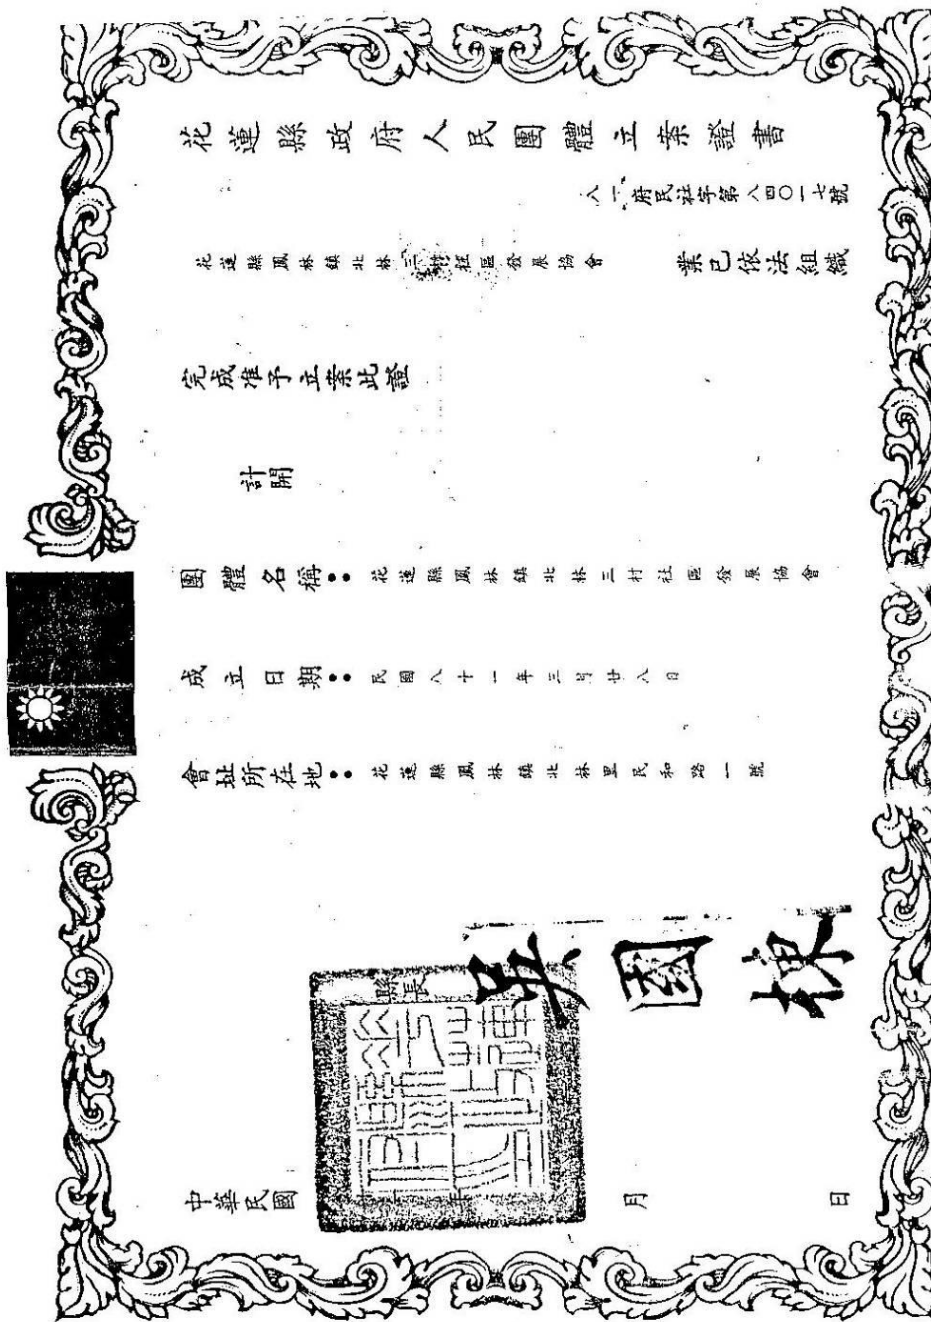 花蓮縣政府人民團體立案證書
八一府民社字第八四〇一七號
花蓮縣鳳林鎮北林三村社區發展協會 業已依法組織
完成准予立案此證
計開
團體名稱：花蓮縣鳳林鎮北林三村社區發展協會
成立日期：民國八十一年三月廿八日
會址所在地：花蓮縣鳳林鎮北林里民和路一號
縣長 吳國棟
中華民國 年 月 日